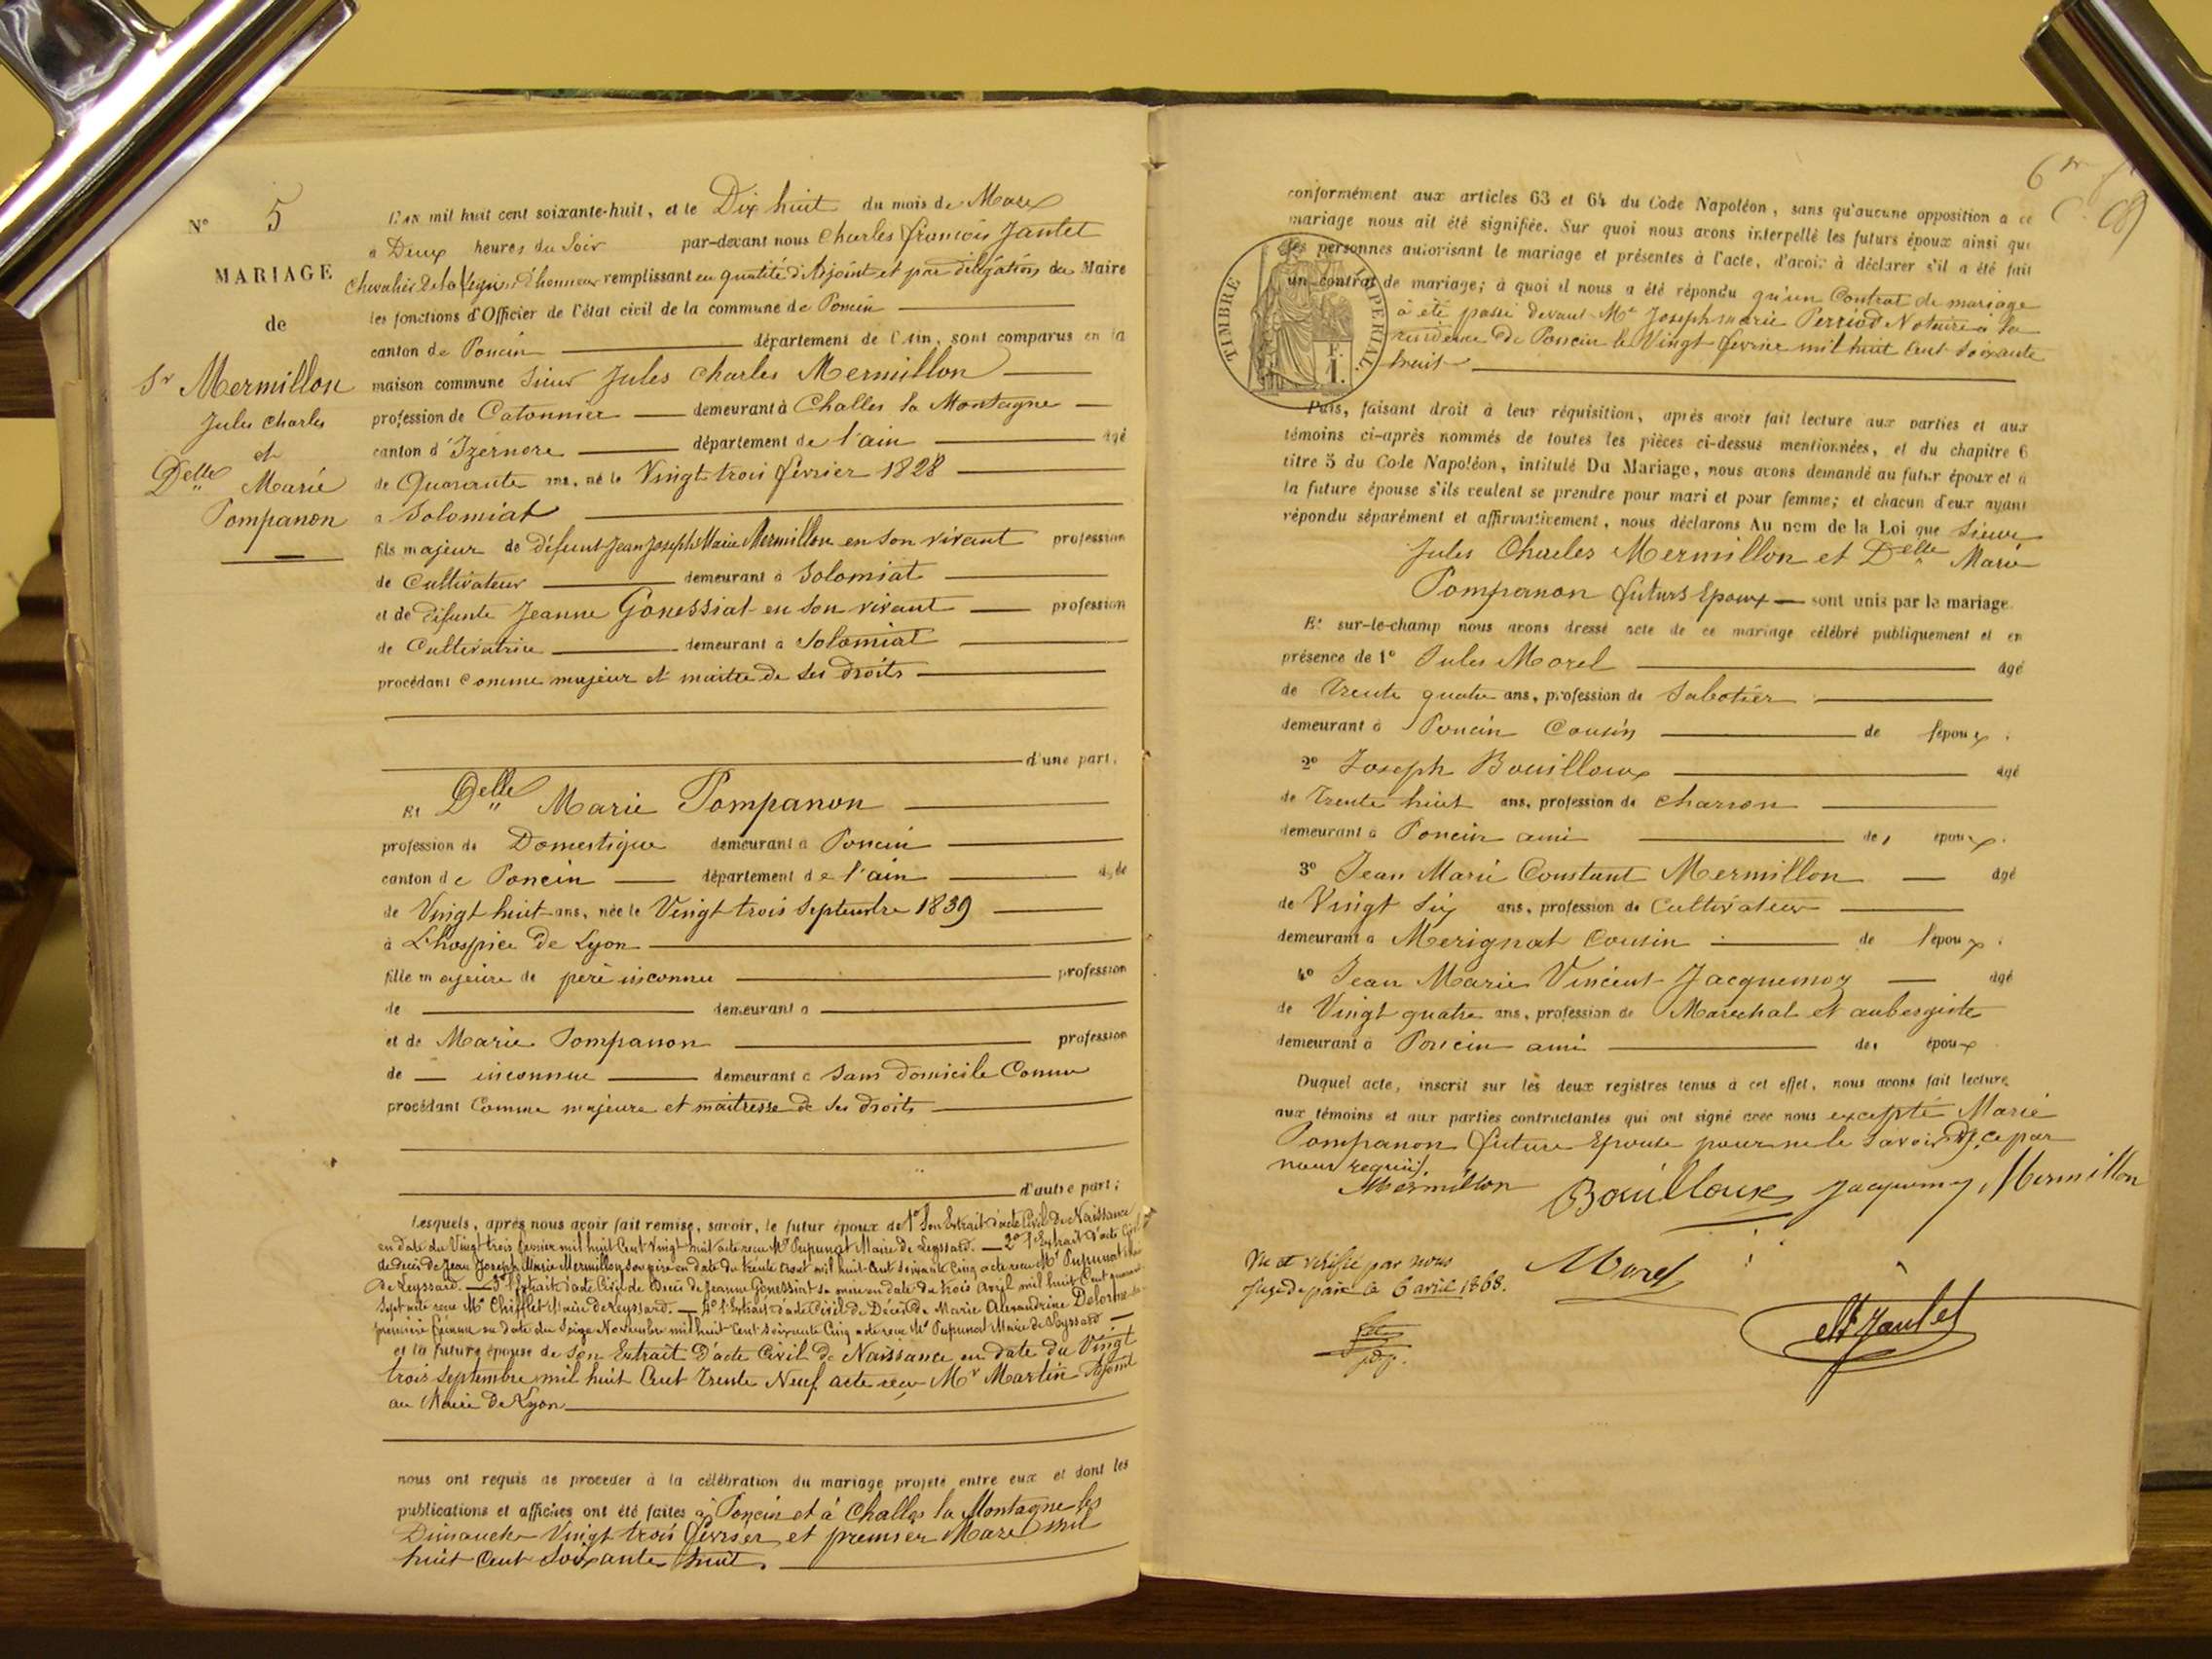 N° 5
MARIAGE
de
Sr Mermillon
Jules Charles
et
Delle Marie
Pompanon
L'an mil huit cent soixante-huit, et le Dix huit du mois de Mars
a Deux heures du Soir par-devant nous Charles françois Jantet
Chevalier de la Légion d'honneur remplissant en qualité d'Adjoint et par délégation du Maire
les fonctions d'Officier de l'état civil de la commune de Poncin
canton de Poncin département de l'Ain, sont comparus en la
maison commune Sieur Jules Charles Mermillon
profession de Catonnier demeurant à Challes la Montagne
canton d'Izernore département de l'ain âgé
de Quarante ans, né le Vingt trois février 1828
a Solomiat
fils majeur de défunt Jean Joseph Marie Mermillon en son vivant profession
de Cultivateur demeurant à Solomiat
et de défunte Jeanne Gonessiat en son vivant profession
de Cultivatrice demeurant a Solomiat
procédant Comme majeur et maitre de ses droits
d'une part.
Et Delle Marie Pompanon
profession de Domestique demeurant a Poncin
canton de Poncin département de l'ain âgée
de Vingt huit ans, née le Vingt trois Septembre 1839
à L'hospice de Lyon
fille majeure de père inconnu profession
de demeurant a
et de Marie Pompanon profession
de inconnue demeurant a Sans domicile Connu
procédant Comme majeure et maitresse de ses droits
d'autre part;
Lesquels, après nous avoir fait remise, savoir, le futur époux de 1° Son Extrait d'acte Civil de Naissance
en date du Vingt trois février mil huit Cent Vingt huit acte recu Mr Pupunat Maire de Leyssard. 2° l'Extrait d'acte Civil
de décès de Jean Joseph Marie Mermillon son père en date du trente aout mil huit Cent Soixante Cinq acte recu Mr Pupunat
de Leyssard. 3° l'Extrait d'acte Civil de Décès de Jeanne Gonessiat sa mère en date du trois avril mil huit Cent
Sept acte recu Mr Chifflet Maire de Leyssard. 4° l'Extrait d'acte Civil de Décès de Marie Alexandrine Delorme
première femme en date du Seize Novembre mil huit Cent soixante Cinq acte recu Mr Pupunat Maire de Leyssard
et la future épouse de Son Extrait D'acte Civil de Naissance en date du Vingt
trois Septembre mil huit Cent Trente Neuf acte recu Mr Martin Adjoint
au Maire de Lyon
nous ont requis de procéder à la célébration du mariage projeté entre eux et dont les
publications et affiches ont été faites à Poncin et à Challes la Montagne les
Dimanche Vingt trois février et premier Mars mil
huit Cent Soixante huit.
conformément aux articles 63 et 64 du Code Napoléon, sans qu'aucune opposition a ce
mariage nous ait été signifiée. Sur quoi nous avons interpellé les futurs époux ainsi que
les personnes autorisant le mariage et présentes à l'acte, d'avoir à déclarer s'il a été fait
un contrat de mariage; à quoi il nous a été répondu qu'un Contrat de mariage
à été passé devant Me Joseph marie Perriod Notaire à la
résidence de Poncin le Vingt février mil huit Cent Soixante
huit
TIMBRE IMPERIAL.
F.
1.
Puis, faisant droit à leur réquisition, après avoir fait lecture aux parties et aux
témoins ci-après nommés de toutes les pièces ci-dessus mentionnées, et du chapitre 6
titre 5 du Code Napoléon, intitulé Du Mariage, nous avons demandé au futur époux et a
la future épouse s'ils veulent se prendre pour mari et pour femme; et chacun d'eux ayant
répondu séparément et affirmativement, nous déclarons Au nom de la Loi que Sieur
Jules Charles Mermillon et Delle Marie
Pompanon futurs Epoux sont unis par le mariage.
Et sur-le-champ nous avons dressé acte de ce mariage célébré publiquement et en
présence de 1° Jules Morel âgé
de Trente quatre ans, profession de Sabotier
demeurant à Poncin Cousin de l'époux.
2° Joseph Bouilloux âgé
de Trente huit ans, profession de Charron
demeurant à Poncin ami de l'époux.
3° Jean Marie Constant Mermillon âgé
de Vingt Six ans, profession de Cultivateur
demeurant a Merignat Cousin de l'époux.
4° Jean Marie Vincent Jacquemoz âgé
de Vingt quatre ans, profession de Marechal et aubergiste
demeurant à Poncin ami des époux
Duquel acte, inscrit sur les deux registres tenus à cet effet, nous avons fait lecture
aux témoins et aux parties contractantes qui ont signé avec nous excepté Marie
Pompanon future Epouse pour ne le savoir de ce par
nous requis.
Mermillon Bouilloux Jacquemoz Mermillon
Vu et vérifié par nous
Juge de paix le 6 avril 1868.
Morel
Jantet